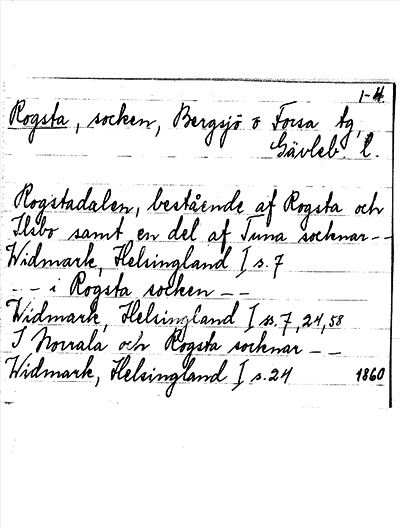 1-4.
Rogsta, socken, Bergsjö o Forsa tg,
Gävleb. l.
Rogstadalen, bestående af Rogsta och
Ilsbo samt en del af Tuna socknar--
Widmark, Helsingland I s. 7
--- i Rogsta socken --
Widmark, Helsingland I ss. 7, 24, 58
I Norrala och Rogsta socknar --
Widmark, Helsingland I s. 24 1860